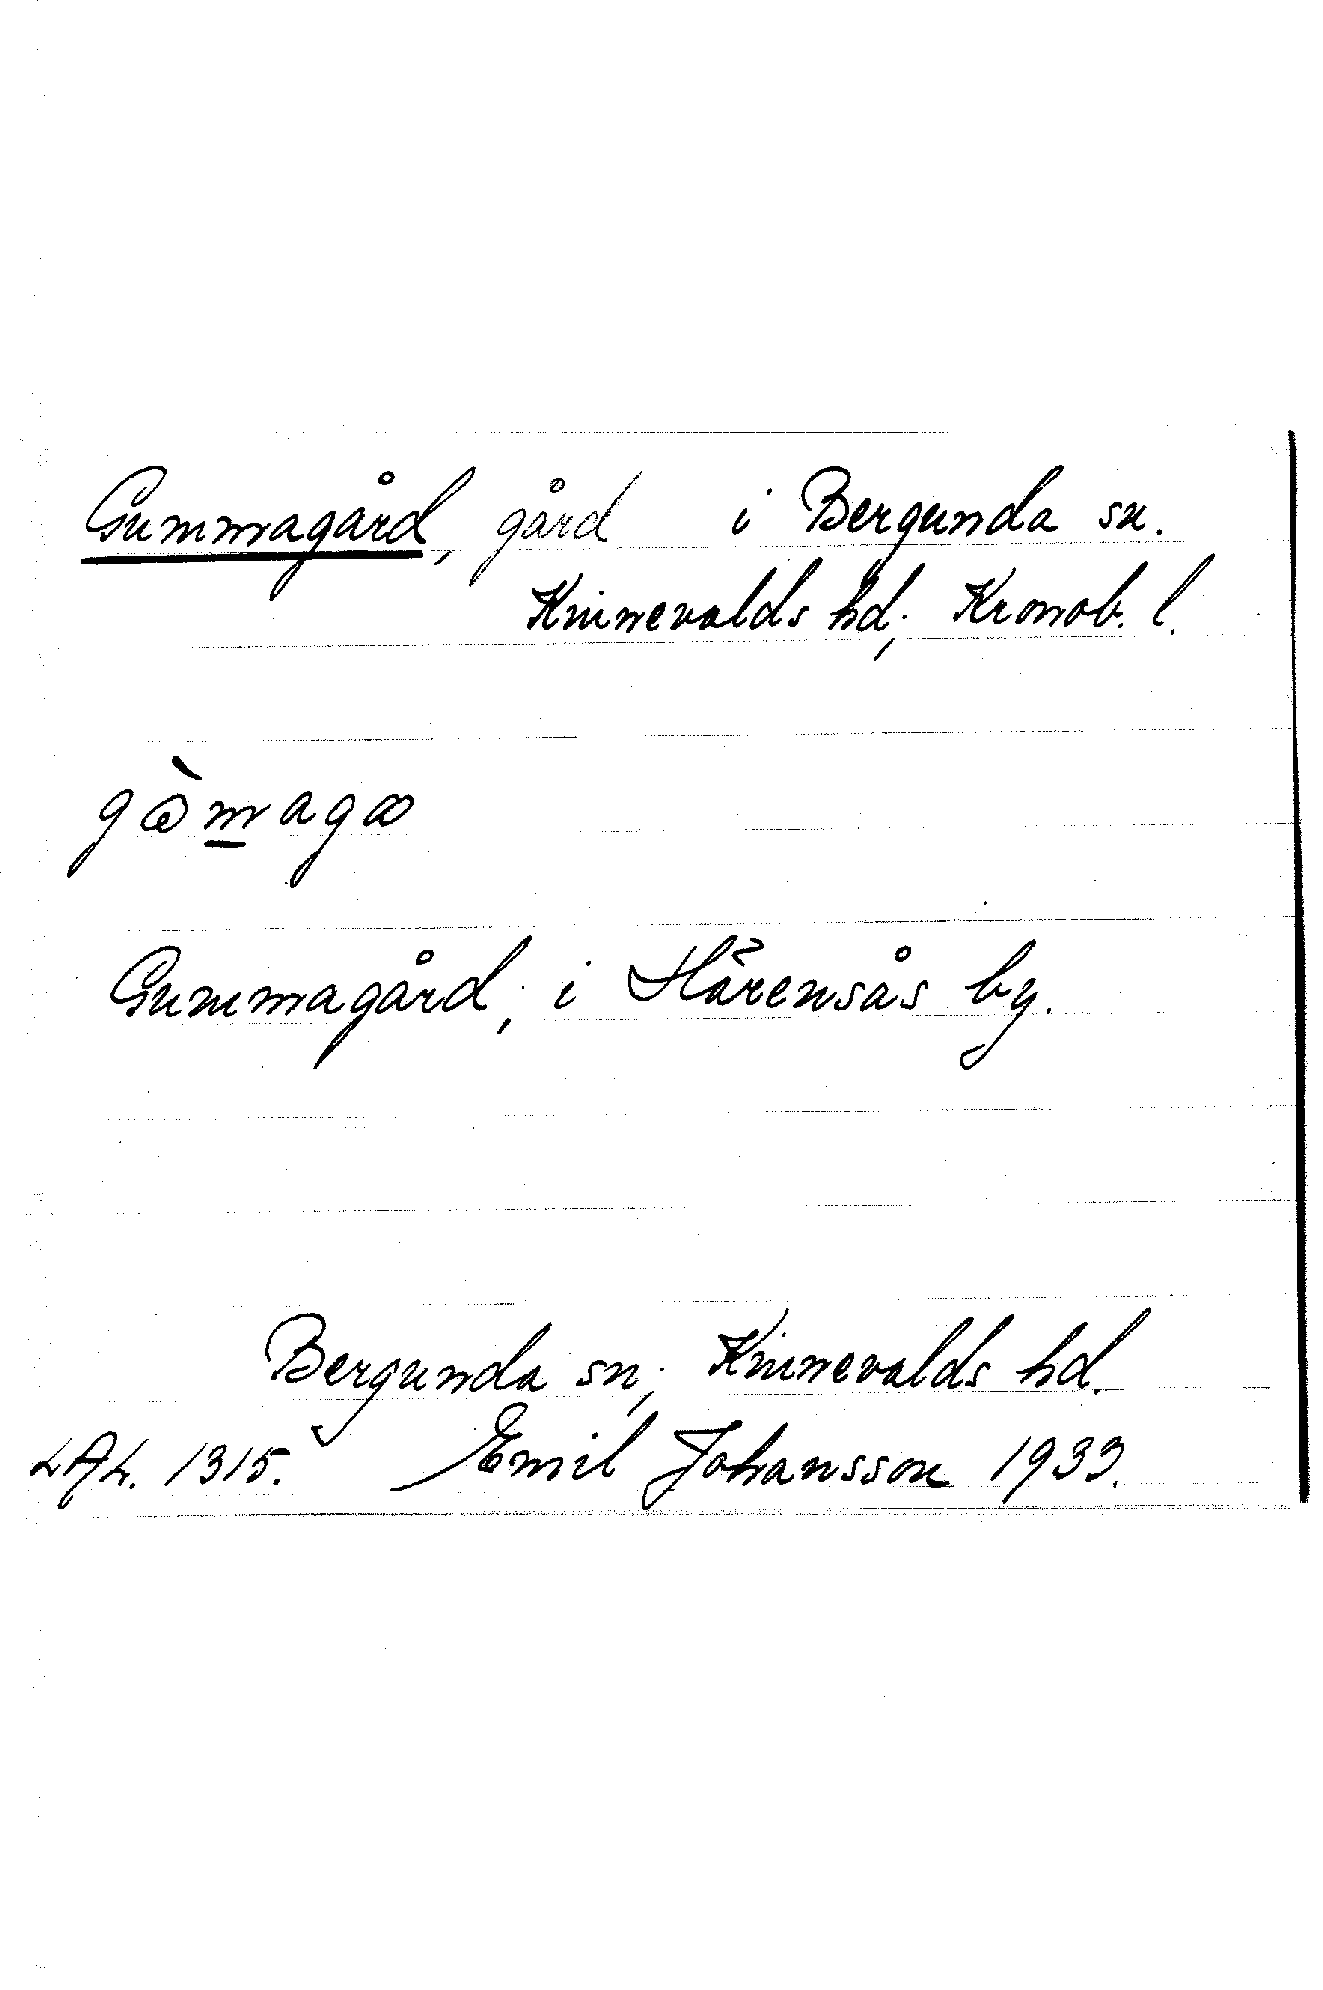 Gummagård, gård i Bergunda sn.
Kinnevalds hd, Kronob. l.
Gummagård, i Hårensås by.
Bergunda sn, Kinnevalds hd.
LAL. 1315. Emil Johansson 1933.